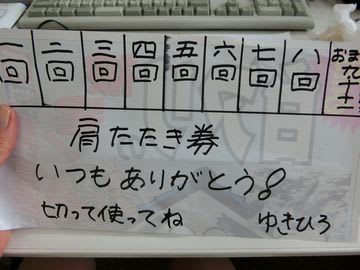 一回 二回 三回 四回 五回 六回 七回 八回 おまけ
肩たたき券
いつもありがとう!
切って使ってね ゆきひろ